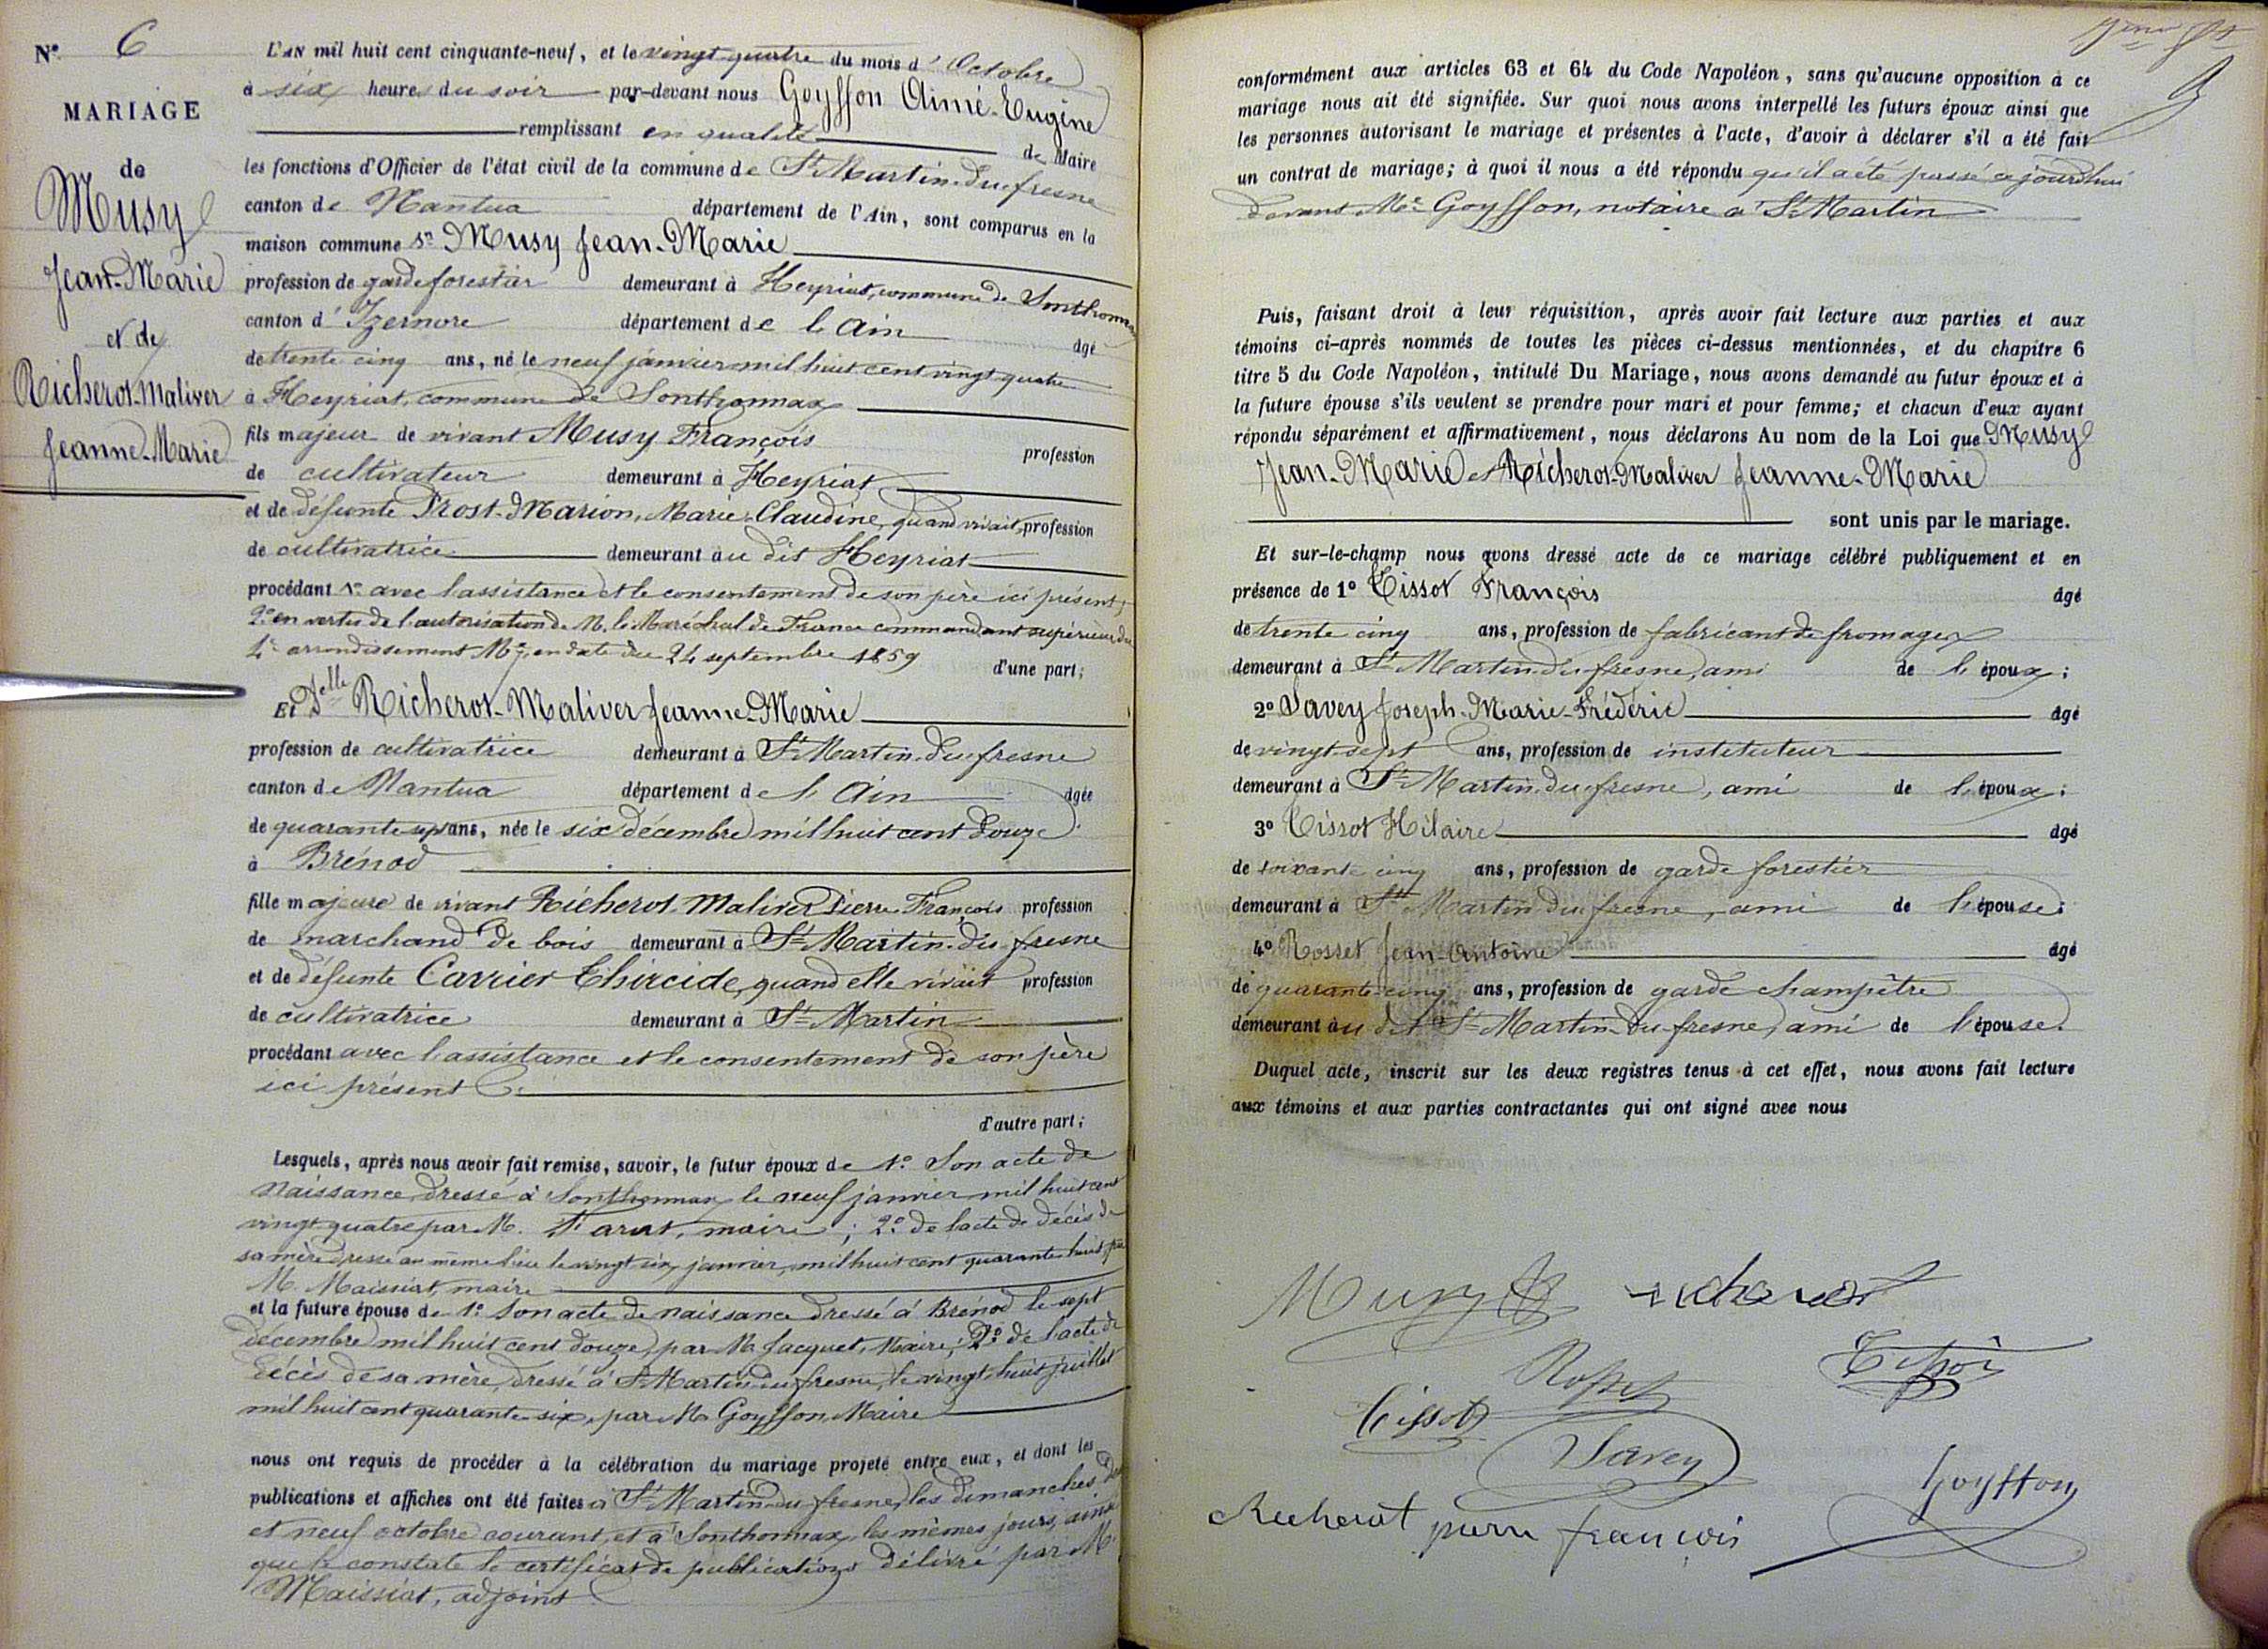 N° 6
MARIAGE
de
Musy
Jean-Marie
et de
Richerot-Maliver
Jeanne-Marie
L'AN mil huit cent cinquante-neuf, et le vingt quatre du mois d'Octobre
à six heures du soir par-devant nous Goyffon Aimé-Eugène
remplissant en qualité de Maire
les fonctions d'Officier de l'état civil de la commune de St Martin-du-fresne
canton de Nantua département de l'Ain, sont comparus en la
maison commune Sr Musy Jean-Marie
profession de garde forestier demeurant à Heyriat, commune de Sonthonnax
canton d'Izernore département de l'Ain âgé
de trente cinq ans, né le neuf janvier mil huit cent vingt quatre
à Heyriat, commune de Sonthonnax
fils majeur de vivant Musy François profession
de cultivateur demeurant à Heyriat
et de défunte Prost-Marion, Marie-Claudine, quand vivait, profession
de cultivatrice demeurant au dit Heyriat
procédant 1° avec l'assistance et le consentement de son père ici présent;
2° en vertu de l'autorisation de M. le Maréchal de France commandant supérieur du
4e arrondissement Mre, en date du 24 septembre 1859 d'une part;
Et Delle Richerot-Maliver Jeanne-Marie
profession de cultivatrice demeurant à St Martin-du-fresne
canton de Nantua département de l'Ain âgée
de quarante sept ans, née le six décembre mil huit cent douze
à Brénod
fille majeure de vivant Richerot-Maliver Pierre-François profession
de marchand de bois demeurant à St Martin-du-fresne
et de défunte Carrier Thircide, quand elle vivait profession
de cultivatrice demeurant à St Martin
procédant avec l'assistance et le consentement de son père
ici présent
d'autre part;
Lesquels, après nous avoir fait remise, savoir, le futur époux de 1° Son acte de
naissance, dressé à Sonthonnax le neuf janvier mil huit cent
vingt quatre par M. maire; 2° de l'acte de décès de
sa mère dressé au même lieu le vingt six janvier, mil huit cent quarante huit, par
M. Maissiat, maire
et la future épouse de 1° Son acte de naissance dressé à Brénod le sept
décembre mil huit cent douze, par M. Jacquet, Maire; 2° de l'acte de
décès de sa mère, dressé à St Martin-du-fresne, le vingt-huit juillet
mil huit cent quarante-six, par M. Goyffon, Maire
nous ont requis de procéder à la célébration du mariage projeté entre eux, et dont les
publications et affiches ont été faites à St Martin-du-fresne, les dimanches
et neuf octobre courant, et à Sonthonnax, les mêmes jours, ainsi
que le constate le certificat de publications délivré par M.
Maissiat, adjoint
conformément aux articles 63 et 64 du Code Napoléon, sans qu'aucune opposition à ce
mariage nous ait été signifiée. Sur quoi nous avons interpellé les futurs époux ainsi que
les personnes autorisant le mariage et présentes à l'acte, d'avoir à déclarer s'il a été fait
un contrat de mariage; à quoi il nous a été répondu qu'il a été passé ce jourd'hui
devant Me Goyffon, notaire à St Martin
Puis, faisant droit à leur réquisition, après avoir fait lecture aux parties et aux
témoins ci-après nommés de toutes les pièces ci-dessus mentionnées, et du chapitre 6
titre 5 du Code Napoléon, intitulé Du Mariage, nous avons demandé au futur époux et à
la future épouse s'ils veulent se prendre pour mari et pour femme; et chacun d'eux ayant
répondu séparément et affirmativement, nous déclarons Au nom de la Loi que Musy
Jean-Marie et Richerot-Maliver Jeanne-Marie
sont unis par le mariage.
Et sur-le-champ nous avons dressé acte de ce mariage célébré publiquement et en
présence de 1° Tissot François âgé
de trente cinq ans, profession de fabricant de fromages
demeurant à St Martin-du-fresne, ami de l'époux;
2° Savey Joseph-Marie-Frédéric âgé
de vingt-sept ans, profession de instituteur
demeurant à St Martin-du-fresne, ami de l'époux;
3° Tissot Hilaire âgé
de soixante cinq ans, profession de garde forestier
demeurant à St Martin-du-fresne, ami de l'épouse;
4° Rosset Jean-Antoine âgé
de quarante-cinq ans, profession de garde champêtre
demeurant au dit St Martin-du-fresne, ami de l'épouse.
Duquel acte, inscrit sur les deux registres tenus à cet effet, nous avons fait lecture
aux témoins et aux parties contractantes qui ont signé avec nous
Musy richerot
Rosset Tissot
Tissot
Savey
Goyffon
Richerot pierre françois